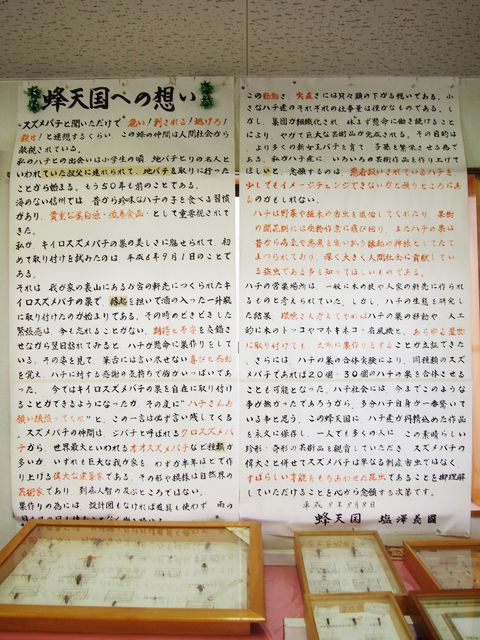 蜂天国への想い
"スズメバチと聞いただけで"危い!刺される!逃げろ!
殺せ!と連想するくらい、この蜂の仲間は人間社会から
敵視されている。
私のハチとの出会いは小学生の頃 地バチとりの名人と
いわれていた叔父に連れられて、地バチを取りに行った
ことから始まる。もう50年も前のことである。
海のない信州では、昔から珍味なハチの子を食べる習慣
があり、貴重な蛋白源・滋養食品として重要視されて
きた。
私が、キイロスズメバチの巣の美しさに魅せられて、初
めて取り付けを試みたのは、平成6年9月1日のことで
ある。
それは 我が家の裏山にあるお宮の軒先につくられたキ
イロスズメバチの巣で、縁起を担いで酒の入った一升瓶
に取り付けたのが始まりである。その時のどきどきした
緊張感は、今も忘れることがない。期待と不安を交錯さ
せながら翌日訪れてみると、ハチが懸命に巣作りをして
いる。その姿を見て、筆舌には言い尽せない喜びと感動
を覚え、ハチに対する感謝の気持ちで胸がいっぱいであ
った。 今ではキイロスズメバチの巣を自在に取り付け
ることができるようになったが、その度に"ハチさんお
願い頑張ってくれ"と、この一言は必ず言い残してくる。
スズメバチの仲間は、ジバチと呼ばれるクロスズメバ
チから、世界最大といわれるオオスズメバチなど種類が
多いが、いずれも巨大な我が家を、わずか半年ほどで作
り上げる偉大な建築家である。その形や模様は自然界の
芸術家であり、到底人智の及ぶところではない。
巣作りの為には、設計図もなければ道具も使わず 雨の
この勤勉さ、実直さには只々頭の下がる想いである。小
さなハチ達のそれぞれの仕事量は僅かなものである。し
かし、集団が組織化され 休まず懸命に働き続けること
により、やがて巨大な芸術品が完成される。その目的は
より多くの新女王バチを育て、子孫を繁栄させる為であ
る。私がハチ達に、いろいろの芸術作品を作り上げて
ほしいと、念願するのは、悪者扱いされているハチを
少しでもイメージチェンジできないかと願うところにあ
るのかもしれない。
ハチは野菜や植木の害虫を退治してくれたり、果樹
の開花期には受粉作業に飛び回り、またハチの巣は
昔から商売や悪魔を追い払う縁起の神様としてたて
まつられており、深く大きく人間社会に貢献してい
る益虫である事も知ってほしいものである。
ハチの営巣場所は、一般に木の枝や人家の軒先に作られ
るものと考えられていた。しかし、ハチの生態を研究し
た結果、環境さえ考えてやればハチの巣の移動や、人工
的に木のトッコやマネキネコ・扇風機と、あらゆる置物
に取り付けても、立派に巣作りをすることが立証できた
。さらには、ハチの巣の合体実験により、同種類のスズ
メバチであれば20個・30個のハチの巣を合体させる
ことも可能となった。ハチ社会には、今までこのような
事が無かったであろうから、多分ハチ自身が一番驚いて
いる事と思う。この蜂天国に ハチ達が丹精込めた作品
を永久に保存し、一人でも多くの人に、この素晴らしい
珍形・奇形の芸術品を観賞していただき スズメバチの
偉大さと併せてスズメバチは単なる刺症害虫ではなく、
すばらしい才能をももちあわせた昆虫であることを御理解
していただけることを心から念願する次第です。
平成9年8月8日
蜂天国 塩澤義國